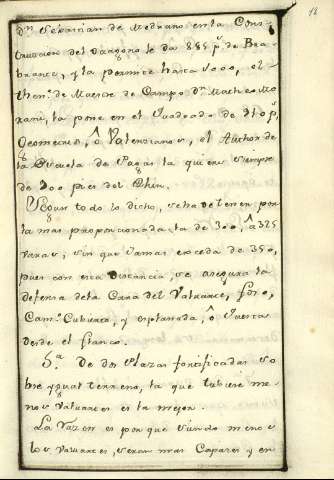 12
Dn. Sebastian de Medrano en la Cons-
truccion del Exagono le da 885 ps. de Bra-
bante, y la permite hasta 1000, el
then.e de Maestre de Campo Dn. Matheo
la pone en el Quadrado de 210 ps.
Geometricos, ô Valensianos, el Author de
la Escuela de Pagàs la quiere siempre
de 200 pies del Rhin.
Segun todo lo dicho, se ha de tener por
la mas proporcionada la de 300, â 325
varas, sin que jamas exceda de 350,
pues con esta distancia, se asegura la
defensa de la Cara del Valuarte, foso,
Cam.o Cubierto, y esplanada, ô Puesta
desde el flanco.
5.a De dos Plazas fortificadas so
bre ygual terreno, la que tubiere me
nos valuartes es la mejor.
La razon es porque siendo menos
los valuartes, seran mas Capazes y en